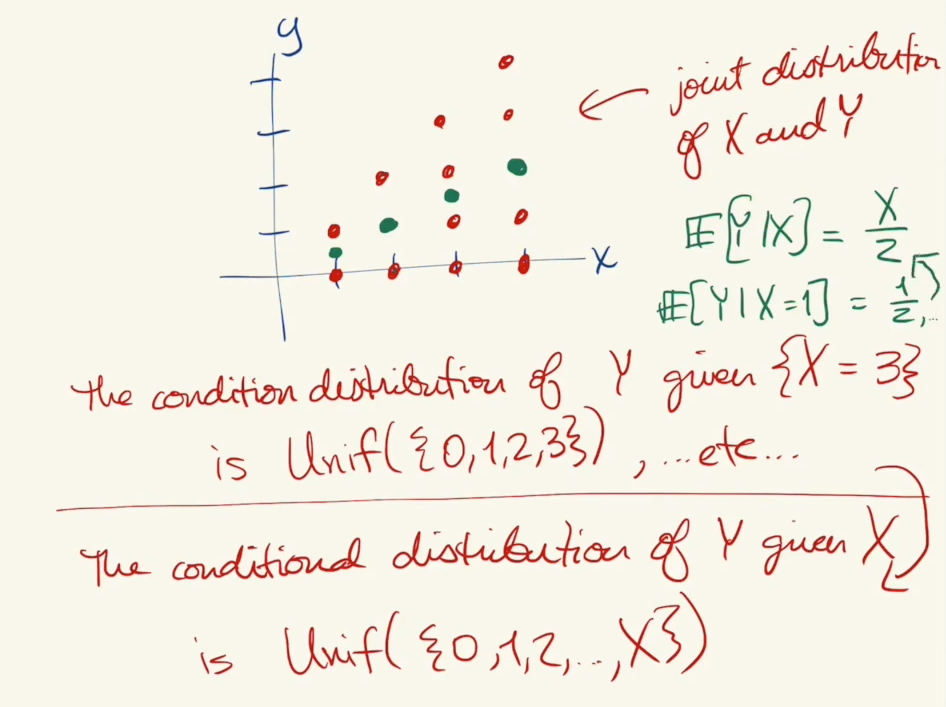 y
joint distribution
of X and Y
x
𝔼[Y|X] = X/2
𝔼[Y|X=1] = 1/2,..
The condition distribution of Y given {X = 3}
is Unif({0,1,2,3}) , ...etc...
The conditional distribution of Y given X
is Unif({0,1,2,..,X})